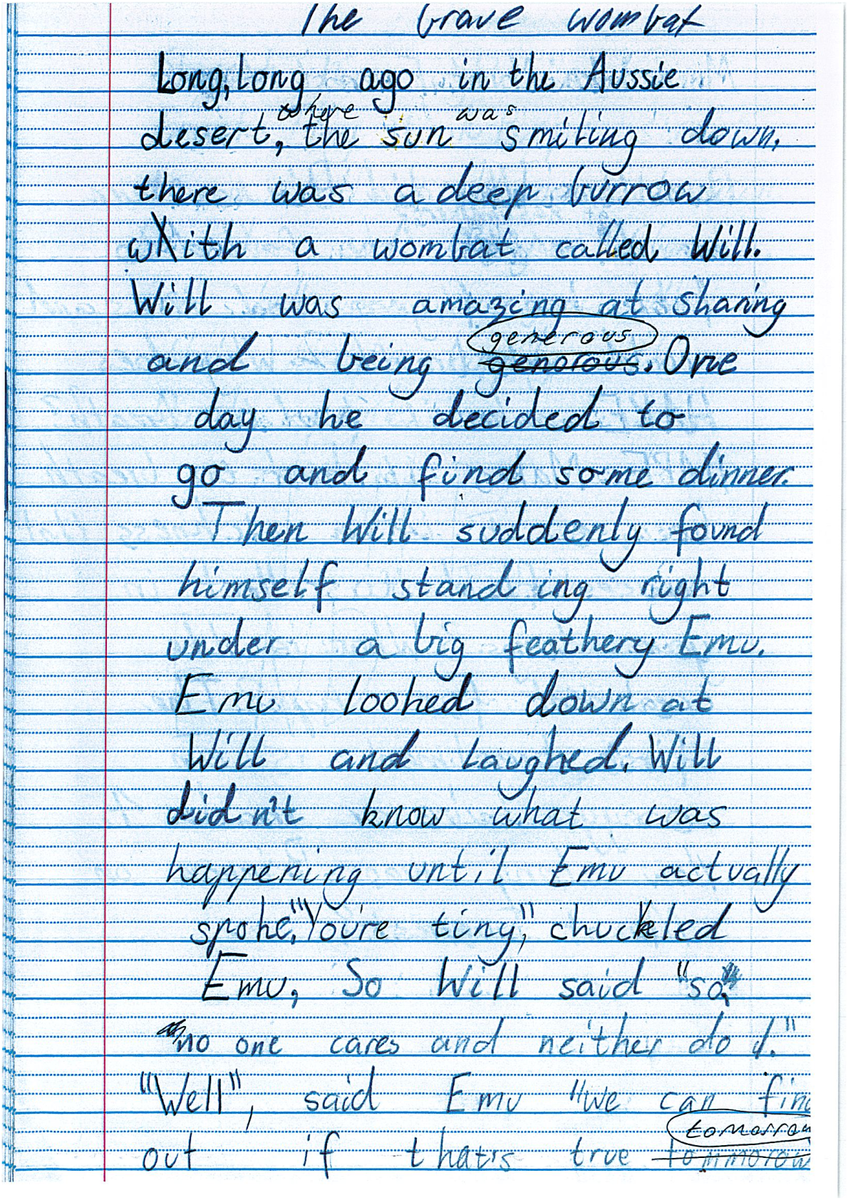 The brave wombat
Long, long ago in the Aussie
where was
desert, the sun smiling down,
there was a deep burrow
with a wombat called Will.
Will was amazing at sharing
generous
and being genorous. One
day he decided to
go and find some dinner.
Then Will suddenly found
himself standing right
under a big feathery Emu.
Emu looked down at
Will and laughed. Will
didn't know what was
happening until Emu actually
spoke, "You're tiny," chuckled
Emu, So Will said "so,
"no one cares and neither do I."
"Well", said Emu "we can find
tomorrow
out if that's true tommorow